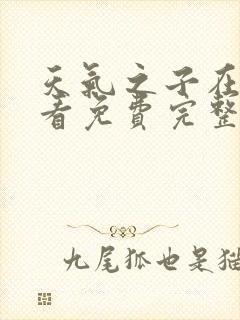 天氣之子在
看免費完整
九尾狐也是貓